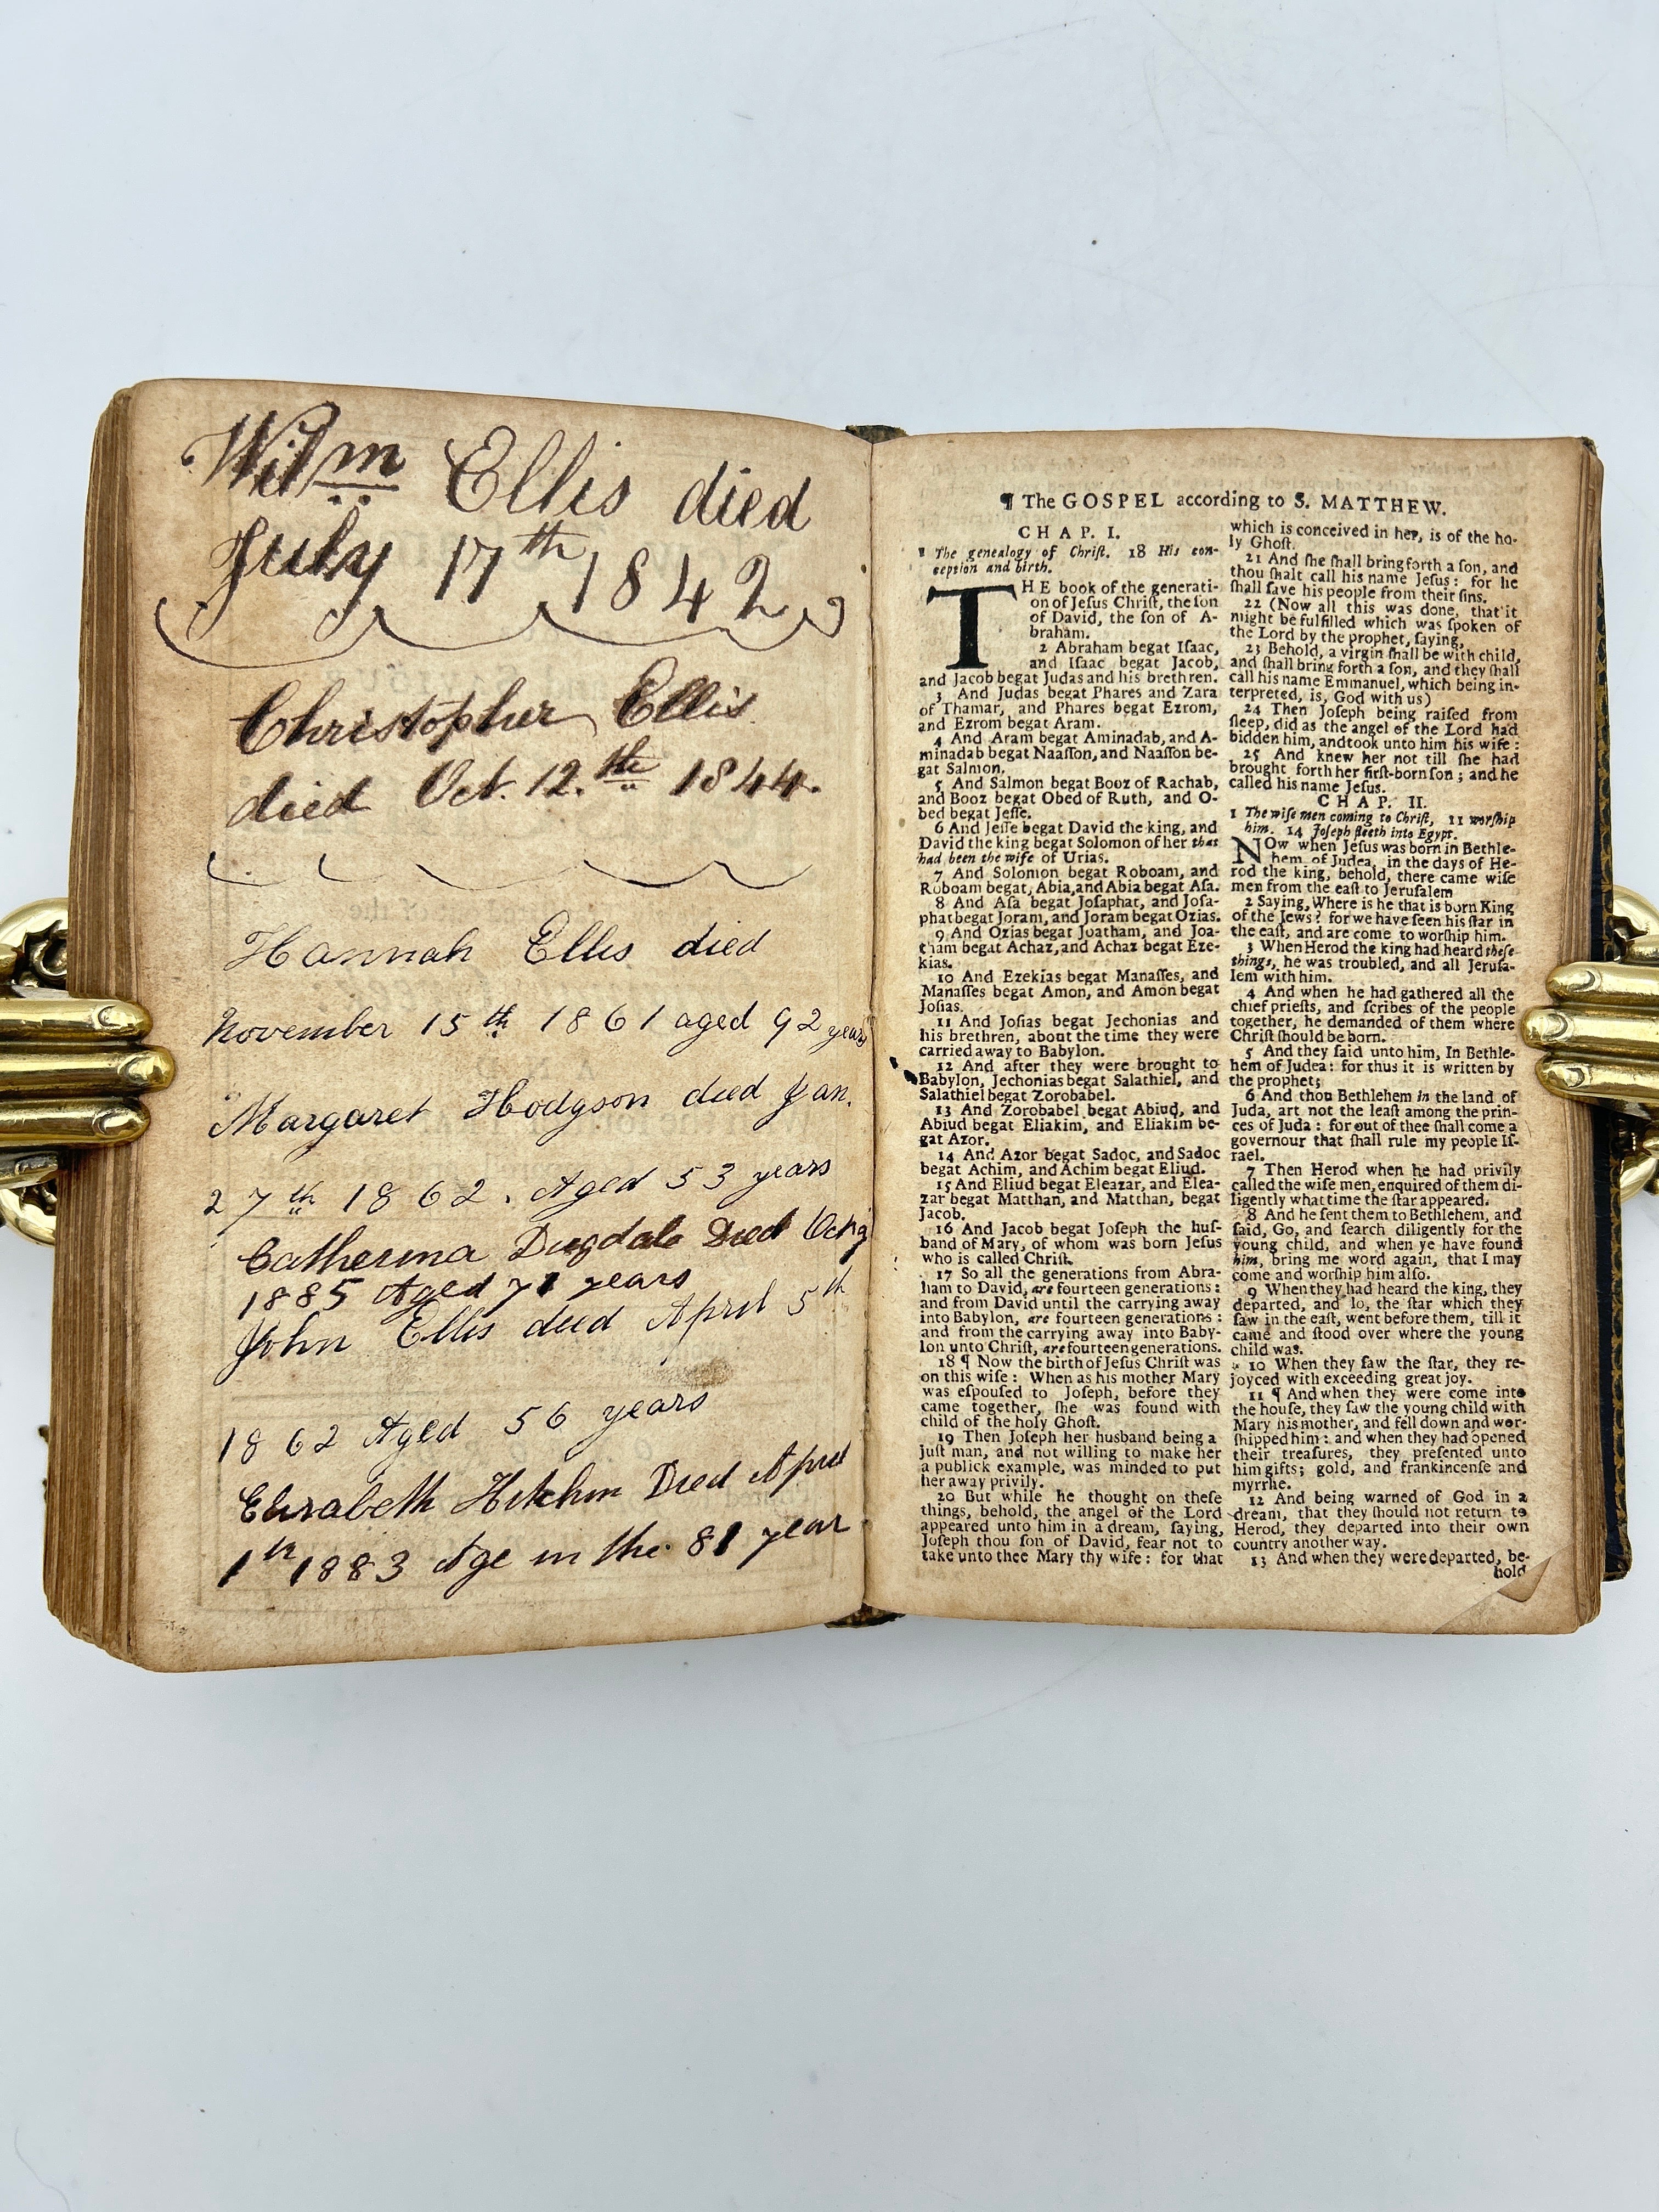 Wilm Ellis died
July 17th 1842
Christopher Ellis
died Oct. 12.th 1844.
Hannah Ellis died
November 15th 1861 aged 92 years
Margaret Hodgson died Jan.
27th 1862. Aged 53 years
Catherina Dugdale Died Oct 9
1885 Aged 71 years
John Ellis died April 5th
1862 Aged 56 years
Elizabeth Hitchin Died April
1th 1883 Age in the 81 year
¶ The GOSPEL according to S. MATTHEW.
CHAP. I.
1 The genealogy of Chriſt. 18 His con-
ception and birth.
THE book of the generati-
on of Jeſus Chriſt, the ſon
of David, the ſon of A-
braham.
2 Abraham begat Iſaac,
and Iſaac begat Jacob,
and Jacob begat Judas and his brethren.
3 And Judas begat Phares and Zara
of Thamar, and Phares begat Ezrom,
and Ezrom begat Aram.
4 And Aram begat Aminadab, and A-
minadab begat Naaſſon, and Naaſſon be-
gat Salmon.
5 And Salmon begat Booz of Rachab,
and Booz begat Obed of Ruth, and O-
bed begat Jeſſe.
6 And Jeſſe begat David the king, and
David the king begat Solomon of her that
had been the wife of Urias.
7 And Solomon begat Roboam, and
Roboam begat, Abia, and Abia begat Aſa.
8 And Aſa begat Joſaphat, and Joſa-
phat begat Joram, and Joram begat Ozias.
9 And Ozias begat Joatham, and Joa-
tham begat Achaz, and Achaz begat Eze-
kias.
10 And Ezekias begat Manaſſes, and
Manaſſes begat Amon, and Amon begat
Joſias.
11 And Joſias begat Jechonias and
his brethren, about the time they were
carried away to Babylon.
12 And after they were brought to
Babylon, Jechonias begat Salathiel, and
Salathiel begat Zorobabel.
13 And Zorobabel begat Abiud, and
Abiud begat Eliakim, and Eliakim be-
gat Azor.
14 And Azor begat Sadoc, and Sadoc
begat Achim, and Achim begat Eliud.
15 And Eliud begat Eleazar, and Elea-
zar begat Matthan, and Matthan, begat
Jacob.
16 And Jacob begat Joſeph the huſ-
band of Mary, of whom was born Jeſus
who is called Chriſt.
17 So all the generations from Abra-
ham to David, are fourteen generations:
and from David until the carrying away
into Babylon, are fourteen generations:
and from the carrying away into Baby-
lon unto Chriſt, are fourteen generations.
18 ¶ Now the birth of Jeſus Chriſt was
on this wiſe: When as his mother Mary
was eſpouſed to Joſeph, before they
came together, ſhe was found with
child of the holy Ghoſt.
19 Then Joſeph her husband being a
juſt man, and not willing to make her
a publick example, was minded to put
her away privily.
20 But while he thought on theſe
things, behold, the angel of the Lord
appeared unto him in a dream, ſaying,
Joſeph thou ſon of David, fear not to
take unto thee Mary thy wife: for that
which is conceived in her, is of the ho-
ly Ghoſt.
21 And ſhe ſhall bring forth a ſon, and
thou ſhalt call his name Jeſus: for he
ſhall ſave his people from their ſins.
22 (Now all this was done, that it
might be fulfilled which was ſpoken of
the Lord by the prophet, ſaying,
23 Behold, a virgin ſhall be with child,
and ſhall bring forth a ſon, and they ſhall
call his name Emmanuel, which being in-
terpreted, is, God with us)
24 Then Joſeph being raiſed from
ſleep, did as the angel of the Lord had
bidden him, and took unto him his wife:
25 And knew her not till ſhe had
brought forth her firſt-born ſon; and he
called his name Jeſus.
CHAP. II.
1 The wiſe men coming to Chriſt, 11 worſhip
him. 14 Joſeph fleeth into Egypt.
NOw when Jeſus was born in Bethle-
hem of Judea, in the days of He-
rod the king, behold, there came wiſe
men from the eaſt to Jeruſalem
2 Saying, Where is he that is born King
of the Jews? for we have ſeen his ſtar in
the eaſt, and are come to worſhip him.
3 When Herod the king had heard theſe
things, he was troubled, and all Jeruſa-
lem with him.
4 And when he had gathered all the
chief prieſts, and ſcribes of the people
together, he demanded of them where
Chriſt ſhould be born.
5 And they ſaid unto him, In Bethle-
hem of Judea: for thus it is written by
the prophet;
6 And thou Bethlehem in the land of
Juda, art not the leaſt among the prin-
ces of Juda: for out of thee ſhall come a
governour that ſhall rule my people Iſ-
rael.
7 Then Herod when he had privily
called the wiſe men, enquired of them di-
ligently what time the ſtar appeared.
8 And he ſent them to Bethlehem, and
ſaid, Go, and ſearch diligently for the
young child, and when ye have found
him, bring me word again, that I may
come and worſhip him alſo.
9 When they had heard the king, they
departed, and lo, the ſtar which they
ſaw in the eaſt, went before them, till it
came and ſtood over where the young
child was.
10 When they ſaw the ſtar, they re-
joyced with exceeding great joy.
11 ¶ And when they were come into
the houſe, they ſaw the young child with
Mary his mother, and fell down and wor-
ſhipped him: and when they had opened
their treaſures, they preſented unto
him gifts; gold, and frankincenſe and
myrrhe.
12 And being warned of God in a
dream, that they ſhould not return to
Herod, they departed into their own
country another way.
13 And when they were departed, be-
hold